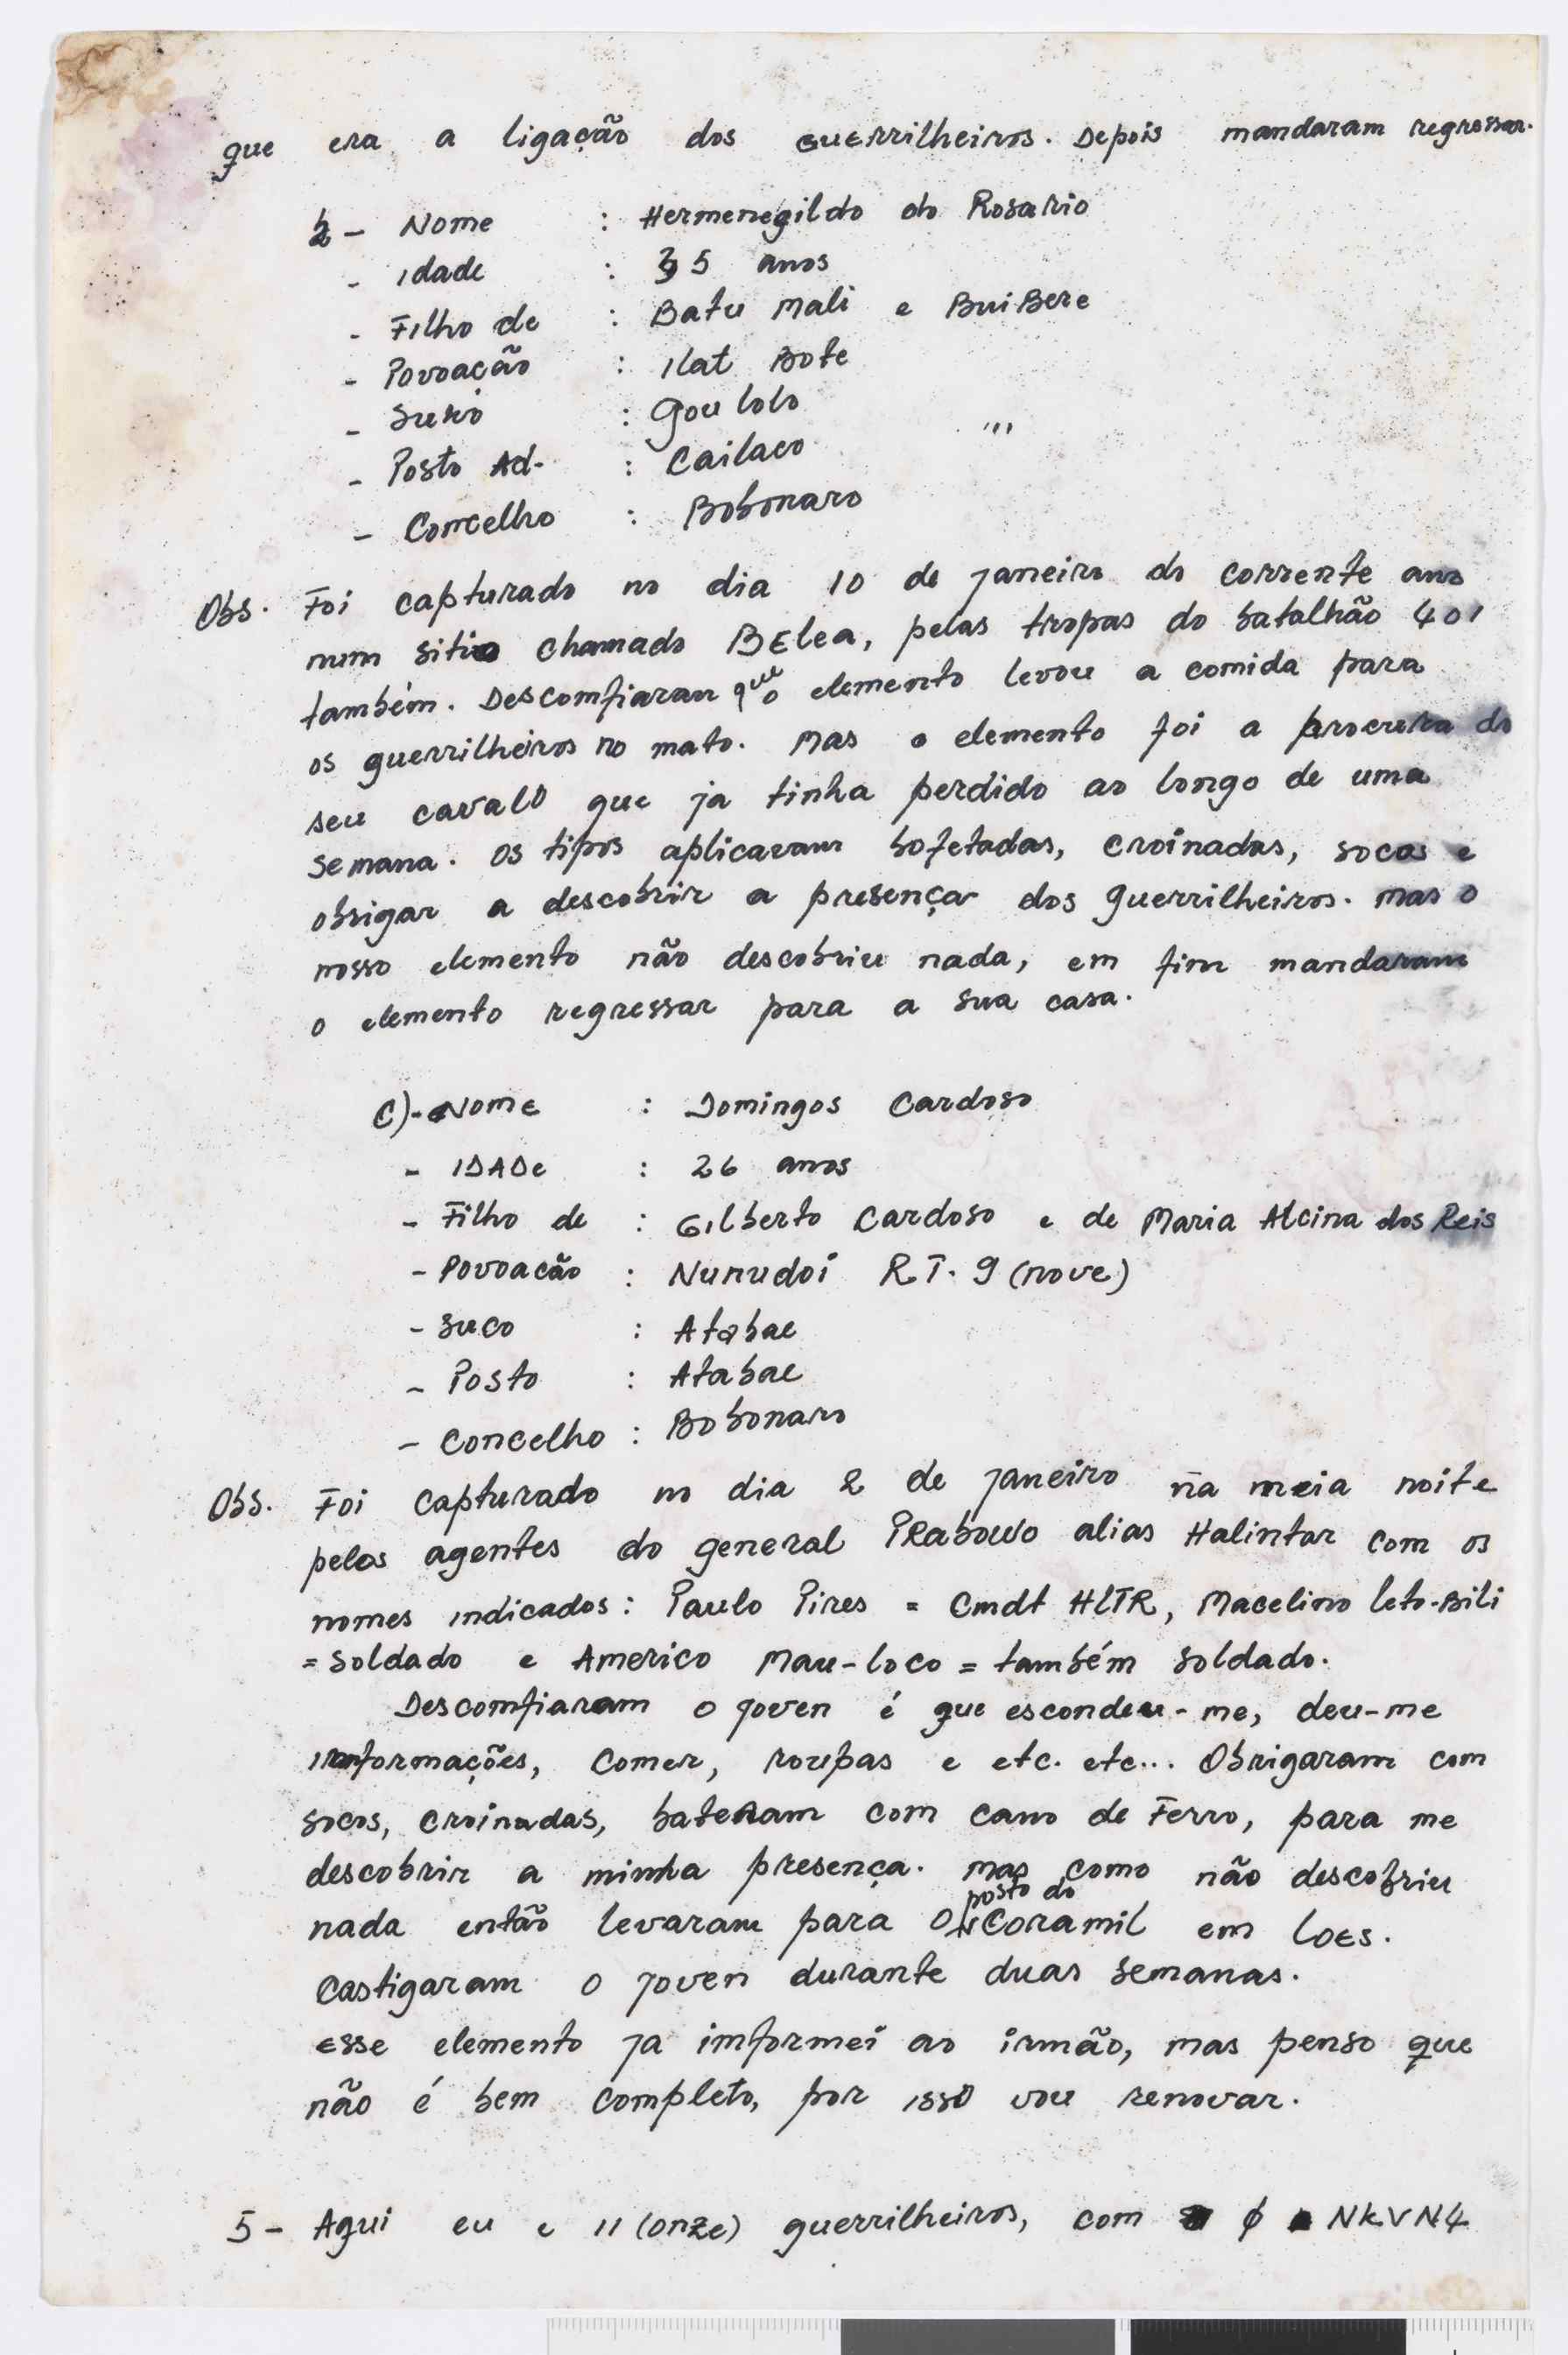 que era a ligação dos guerrilheiros. Depois mandaram regressar.
2 - Nome : Hermenegildo do Rosario
- Idade : 35 anos
- Filho de : Batu Mali e BuiBere
- Povoação : Ilat Bote
- Suko : Goulolo
- Posto Ad. : Cailaco "'
- Concelho : Bobonaro
Obs. Foi capturado no dia 10 de janeiro do corrente ano
num sitio chamado BElea, pelas tropas do batalhão 401
também. Descomfiaram que o elemento levou a comida para
os guerrilheiros no mato. Mas o elemento foi a procura do
seu cavalo que ja tinha perdido ao longo de uma
semana. Os tipos aplicaram bofetadas, croinadas, socos e
obrigar a descobrir a presença dos guerrilheiros. Mas o
nosso elemento não descobriu nada, em fim mandaram
o elemento regressar para a sua casa.
C) - Nome : Domingos Cardoso
- IDADe : 26 anos
- Filho de : Gilberto Cardoso e de Maria Alcina dos Reis
- Povoacão : Nunudoi R T. 9 (nove)
- Suco : Atabae
- Posto : Atabae
- Concelho : Bobonaro
Obs. Foi capturado no dia 2 de janeiro na meia noite
pelos agentes do general PRabowo alias Halintar com os
nomes indicados: Paulo Pires = Cmdt HLTR, Macelino Leto-Bili
= Soldado e Americo Mau-loco = também soldado.
Descomfiaram o joven é que escondeu-me, deu-me
imformações, comer, roupas e etc. etc... Obrigaram com
socos, croinadas, bateram com cano de Ferro, para me
descobrir a minha presença. mas como não descobriu
nada então levaram para o posto do Coramil em Loes.
Castigaram o joven durante duas semanas.
Esse elemento ja imformei ao irmão, mas penso que
não é bem completo, por isso vou renovar.
5 - Aqui eu e 11 (onze) guerrilheiros, com ϕ NKVN4